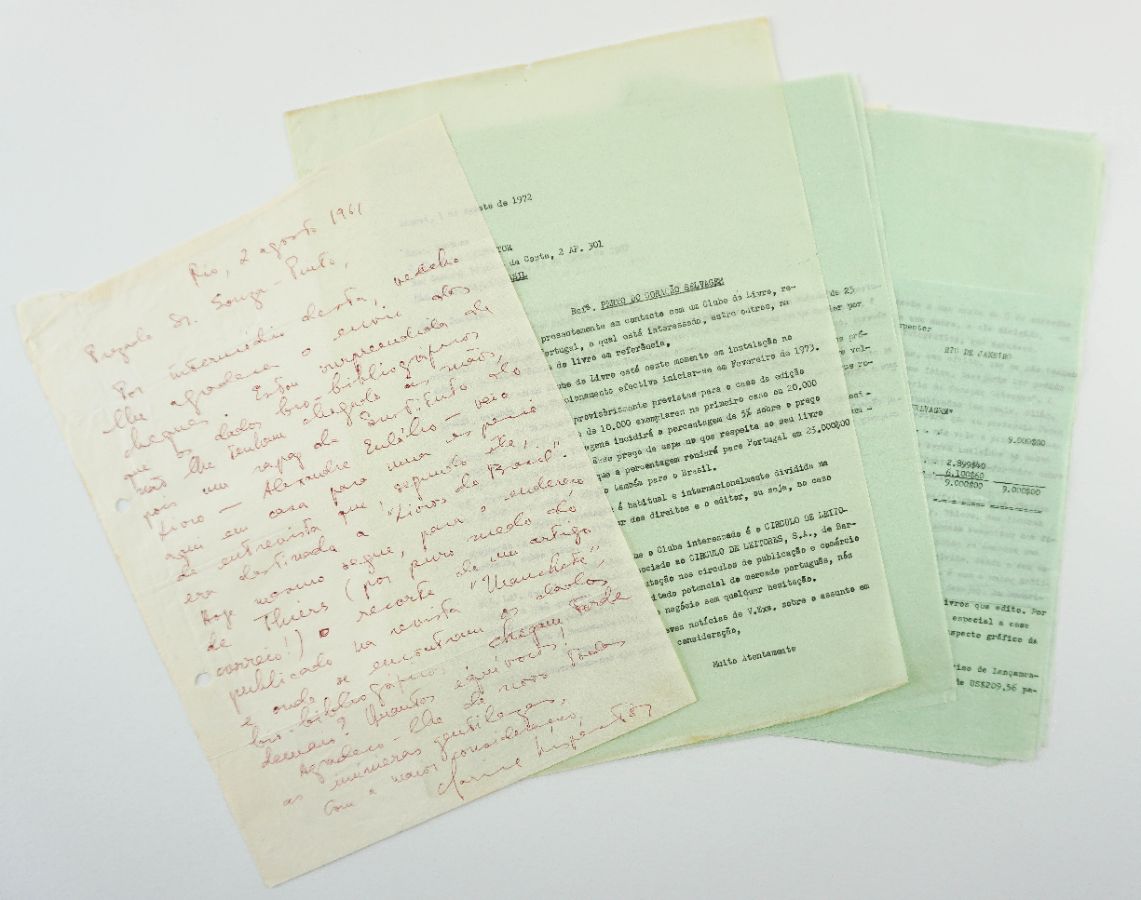 Rio, 2 agosto 1961
Prezado Sr. Souza-Pinto,
Por intermédio desta, venho
lhe agradecer o envio dos
cheques. Estou surpreendida de
que os dados bio-bibliográficos
não lhe tenham chegado às mãos,
pois um rapaz do Instituto do
Livro — Alexandre Eulálio — veio
aqui em casa para uma espécie
de entrevista que, segundo ele,
era destinada a "Livros do Brasil".
Hoje mesmo segue, para o endereço
de Thiers (por puro medo do
correio!) o recorte de um artigo
publicado na revista "Manchete",
e onde se encontram os dados
bio-bibliográficos. Chegam tarde
demais? Quantos equívocos!
Agradeço-lhe de novo todas
as inúmeras gentilezas,
Com a maior consideração,
Clarice Lispector
sto de 1972
TOR
da Costa, 2 AP. 301
SIL
Refª. PERTO DO CORAÇÃO SELVAGEM
presentemente em contacto com um Clube do Livro, re-
Portugal, o qual está interessado, entre outros, na
do livro em referência.
ube do Livro está neste momento em instalação no
cionamento efectivo iniciar-se em Fevereiro de 1973.
provisòriamente previstas para o caso da edição
de 10.000 exemplares no primeiro caso ou 20.000
gens incidirá a percentagem de 5% sobre o preço
esse preço de capa no que respeita ao seu livro
que a percentagem renderá para Portugal em 25.000$00
o também para o Brasil.
é habitual e internacionalmente dividida em
or dos direitos e o editor, ou seja, no caso
ue o Clube interessado é o CIRCULO DE LEITO-
sociado ao CIRCULO DE LEITORES, S.A., de Bar-
utação nos círculos de publicação e comércio
itado potencial do mercado português, nós
o negócio sem qualquer hesitação.
eves notícias de V.Exa. sobre o assunto em
consideração,
Muito Atentamente
de 25
der por
pré-
vol-
ro-
rpenter
RIO DE JANEIRO
SELVAGEM"
9.000$00
2.899$40
6.100$60
9.000$00 9.000$00
ivros que edito. Por
especial a esse
specto gráfico da
iso de Lançamen-
de US$209,56 pa-